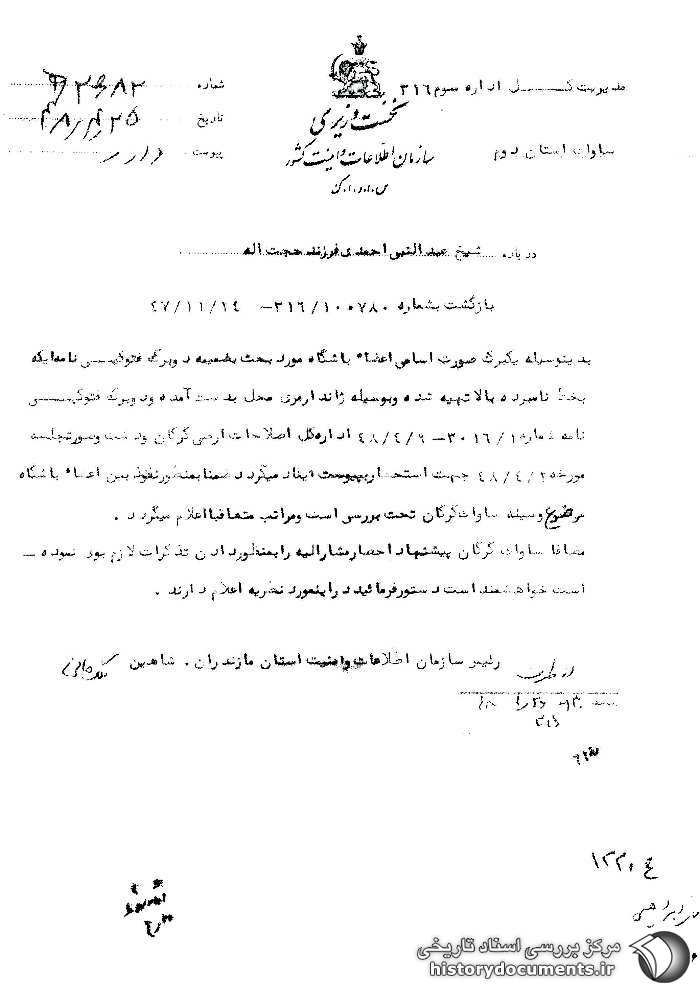 مدیریت کل اداره سوم ۳۱۶
ساواک استان دوم
نخست وزیری
سازمان اطلاعات و امنیت کشور
س.ا.و.ا.ک
شماره
تاریخ
پیوست دارد
درباره شیخ عبدالنبی احمدی فرزند حجت اله
بازگشت بشماره ۳۱۶/۱۰۰۷۸۰ – ۴۷/۱۱/۱۴
بدینوسیله یکبرگ صورت اسامی اعضاء باشگاه مورد بحث بضمیمه دوبرگ فتوکپی نامه‌ایکه
بخط نامبرده بالا تهیه شده و بوسیله ژاندارمری محل بدست آمده و دوبرگ فتوکپی
نامه شماره ۳۰۱۶/۱ – ۴۸/۴/۹ اداره‌کل اصلاحات ارضی گرگان و دشت و صورتجلسه
مورخه ۴۸/۴/۲ جهت استحضار بپیوست ایفاد میگردد ضمنا بمنظور نفوذ بین اعضاء باشگاه
موضوع وسیله ساواک گرگان تحت بررسی است و مراتب متعاقبا اعلام میگردد .
مضافا ساواک گرگان پیشنهاد احضار مشارالیه را بمنظور دادن تذکرات لازم نموده –
است خواهشمند است دستور فرمائید در اینمورد نظریه اعلام دارند .
رئیس سازمان اطلاعات و امنیت استان مازندران . شاهین
۳۱۶
مرکز بررسی اسناد تاریخی
historydocuments.ir